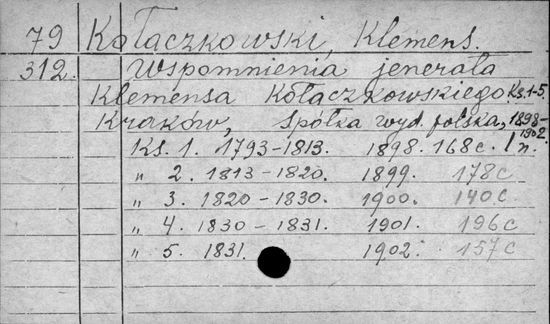 79 Kołaczkowski, Klemens.
312. Wspomnienia jenerała
Klemensa Kołaczkowskiego Ks. 1-5.
Kraków, Spółka wyd. polska, 1898-
1902.
Ks. 1. 1793-1813. 1898. 168 c. 1 n.
" 2. 1813-1820. 1899. 178 c
" 3. 1820-1830. 1900. 140 c
" 4. 1830-1831. 1901. 196 c
" 5. 1831. 1902. 157 c